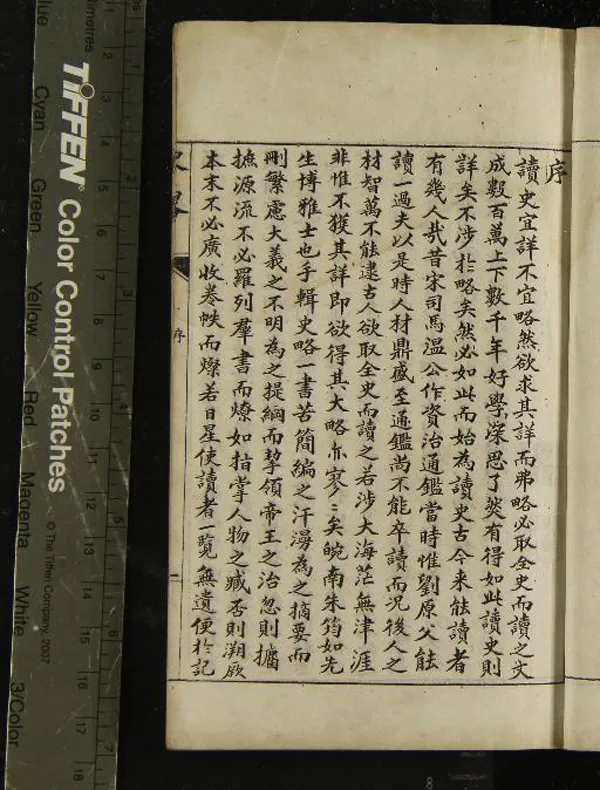 序
讀史宜詳不宜略然欲求其詳而弗略必取全史而讀之文
成數百萬上下數千年好學深思了然有得如此讀史則
詳矣不涉於略矣然必如此而始為讀史古今來能讀者
有幾人哉昔宋司馬溫公作資治通鑑當時惟劉原父能
讀一過夫以是時人材鼎盛至通鑑尚不能卒讀而況後人之
材智萬不能逮古人欲取全史而讀之若涉大海茫無津涯
非惟不獲其詳即欲得其大略亦寥〻矣皖南朱筠如先
生博雅士也手輯史略一書苦簡編之汗漫為之摘要而
刪繁慮大義之不明為之提綱而挈領帝王之治忽則攟
摭源流不必羅列羣書而燎如指掌人物之臧否則溯厥
本末不必廣收卷帙而燦若日星使讀者一覽無遺便於記
序
一
TIFFEN® Color Control Patches
© The Tiffen Company, 2007
Cyan Green Yellow Red Magenta White 3/Color
1 2 3 4 5 6 7
2 3 4 5 6 7 8 9 10 11 12 13 14 15 16 17 18
8